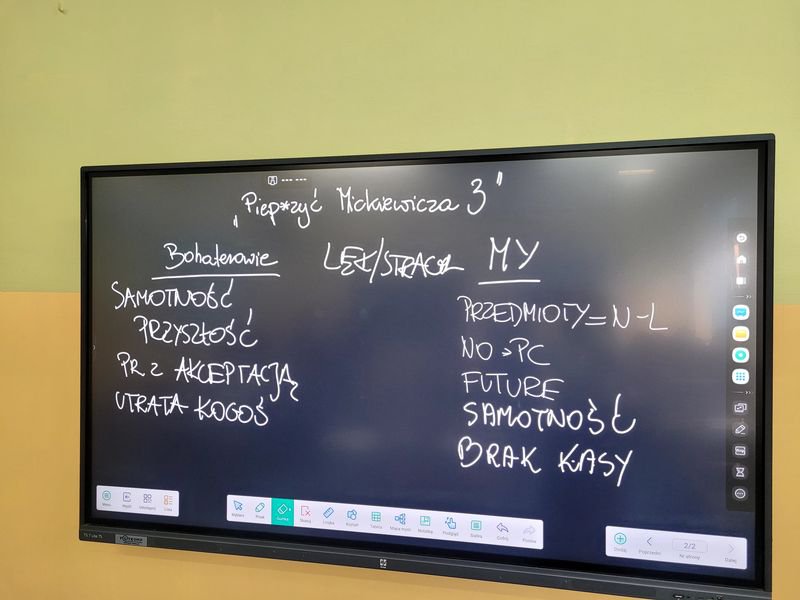 „Piep*zyć Mickiewicza 3"
Bohaterowie
LĘK/STRACH
MY
SAMOTNOŚĆ
PRZYSZŁOŚĆ
PR Z AKCEPTACJĄ
UTRATA KOGOŚ
PRZEDMIOTY=N-L
NO→PC
FUTURE
SAMOTNOŚĆ
BRAK KASY
Menu
Wyjdź
Udostępnij
Lista
Wybierz
Pisak
Gumka
Skasuj
Linijka
Kształt
Tabela
Mapa myśli
Notatka
Podgląd
Siatka
Cofnij
Ponów
Dodaj
Poprzedni
2/2
Nr strony
Dalej